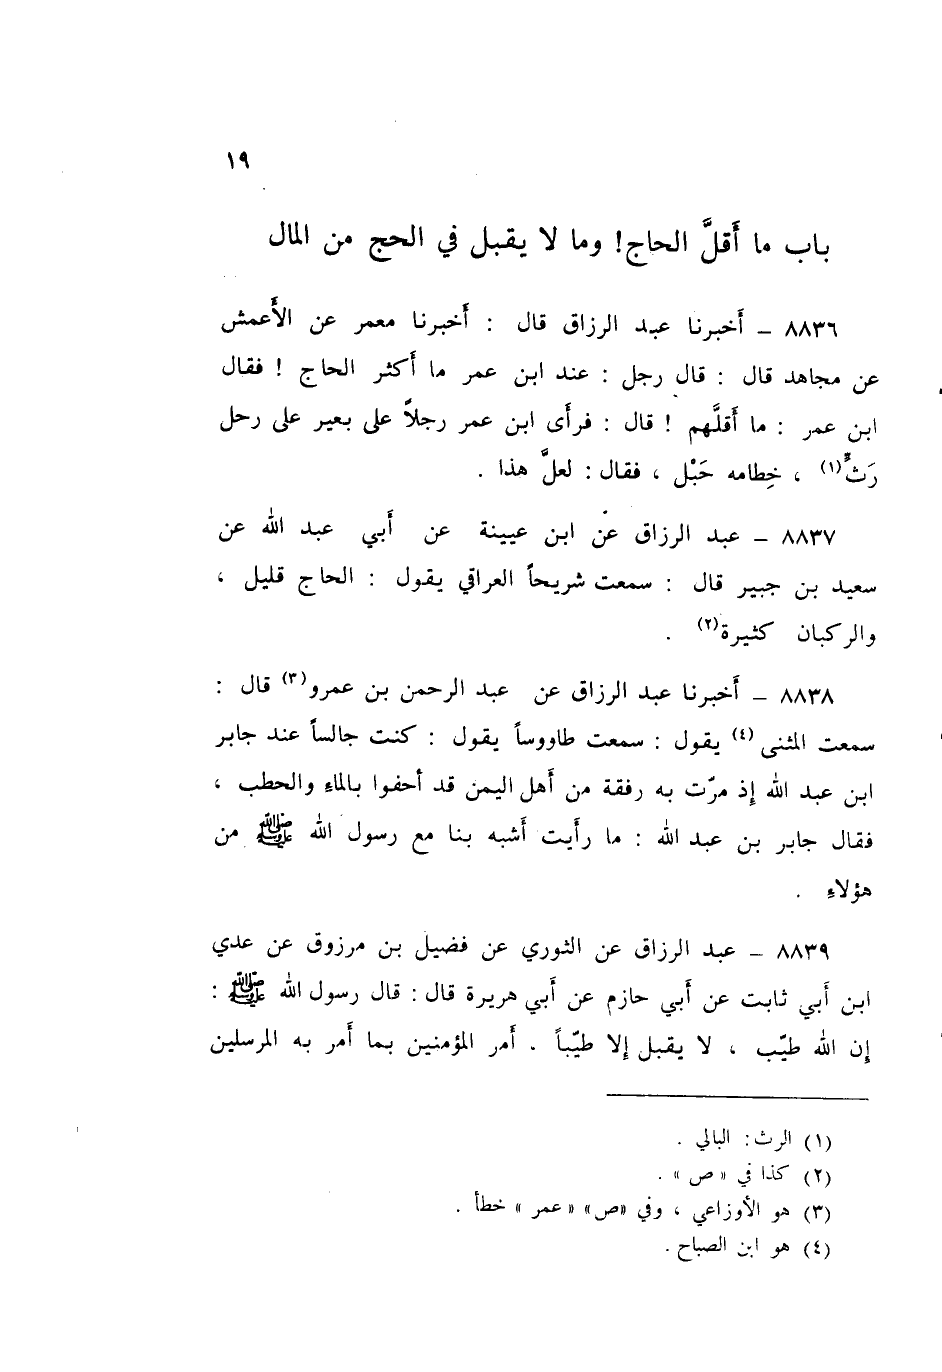 ١٩
باب ما أَقلَّ الحاج! وما لا يقبل في الحج من المال
٨٨٣٦ – أَخبرنا عبد الرزاق قال : أَخبرنا معمر عن الأَعمش
عن مجاهد قال : قال رجل : عند ابن عمر ما أَكثر الحاج ! فقال
ابن عمر : ما أَقلَّهم ! قال : فرأَى ابن عمر رجلاً على بعير على رحل
رَثٍّ(١) ، خِطامه حَبْل ، فقال : لعلَّ هذا .
٨٨٣٧ – عبد الرزاق عن ابن عيينة عن أَبي عبد الله عن
سعيد بن جبير قال : سمعت شريحاً العراقي يقول : الحاج قليل ،
والركبان كثيرة(٢) .
٨٨٣٨ – أَخبرنا عبد الرزاق عن عبد الرحمن بن عمرو(٣) قال :
سمعت المثنى(٤) يقول : سمعت طاووساً يقول : كنت جالساً عند جابر
ابن عبد الله إِذ مرّت به رفقة من أَهل اليمن قد أحفوا بالماءِ والحطب ،
فقال جابر بن عبد الله : ما رأَيت أَشبه بنا مع رسول الله ﷺ من
هؤلاءِ .
٨٨٣٩ – عبد الرزاق عن الثوري عن فضيل بن مرزوق عن عدي
ابن أَبي ثابت عن أَبي حازم عن أَبي هريرة قال : قال رسول الله ﷺ :
إِن الله طيّب ، لا يقبل إِلا طيّباً . أَمر المؤمنين بما أَمر به المرسلين
(١) الرث : البالي .
(٢) كذا في « ص » .
(٣) هو الأوزاعي ، وفي «ص» « عمر » خطأ .
(٤) هو ابن الصباح .